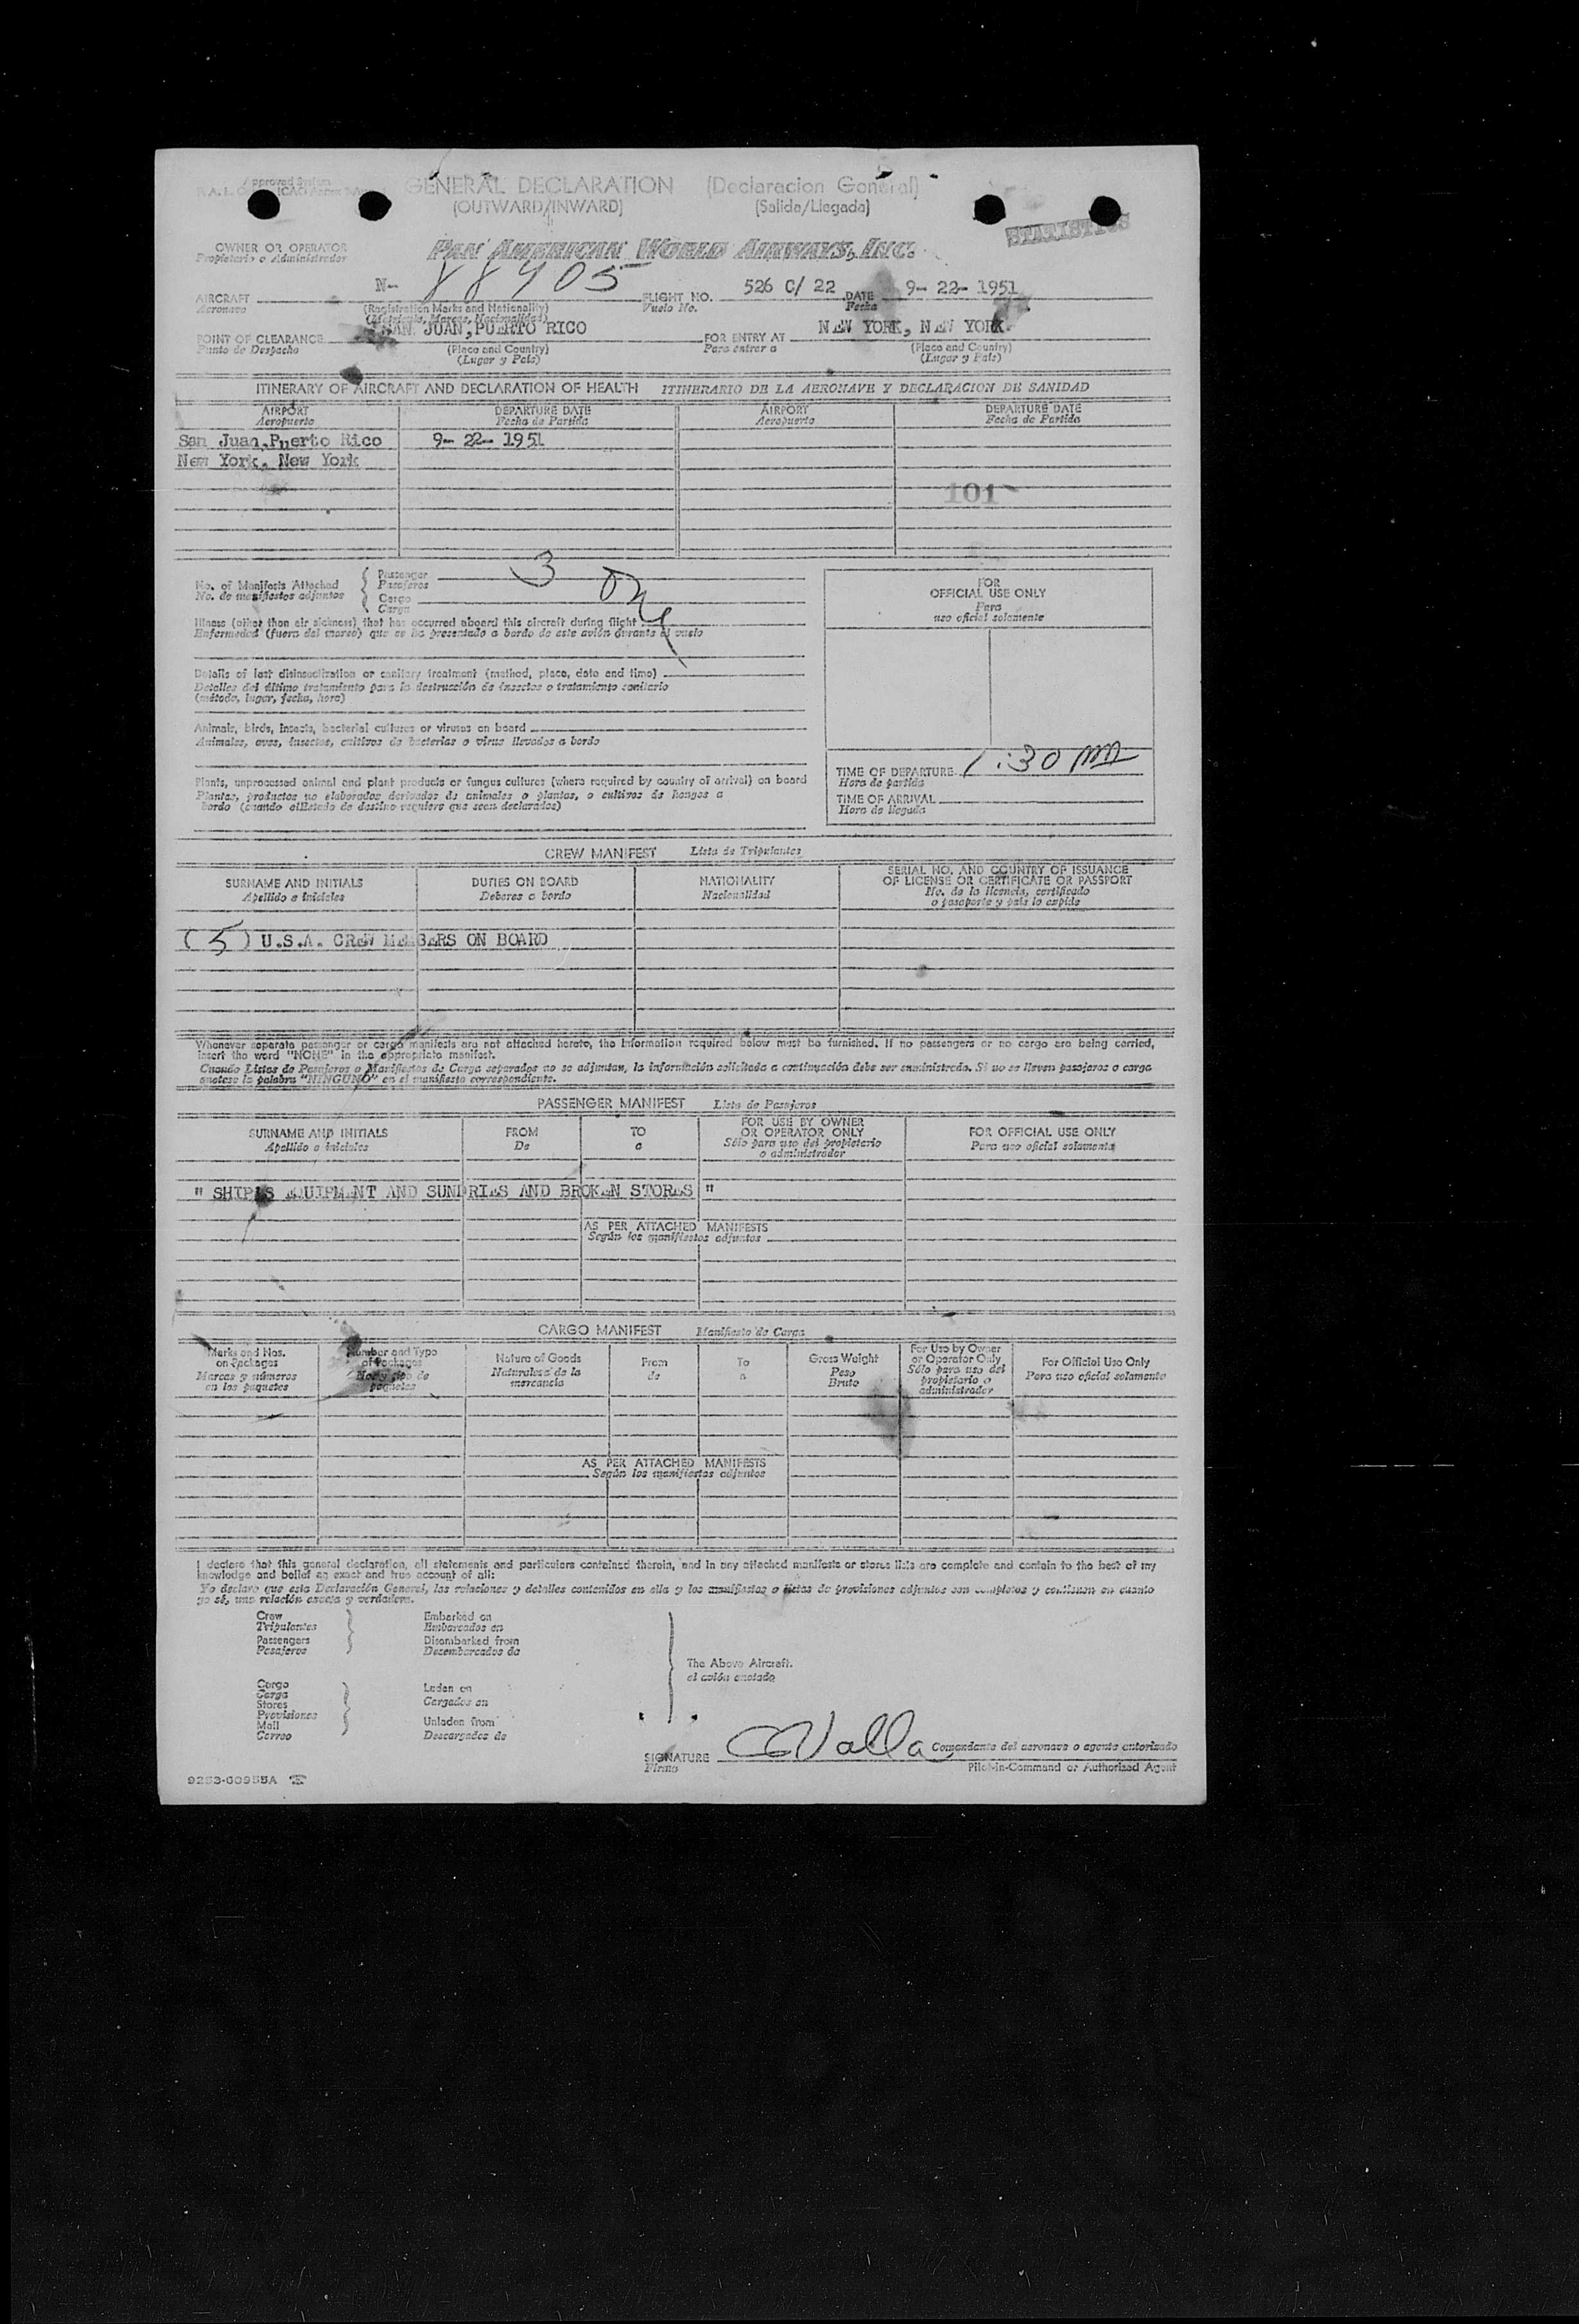 Approved System
GENERAL DECLARATION (Declaracion General)
(OUTWARD/INWARD) (Salida/Llegada)
STATISTICS
OWNER OR OPERATOR PAN AMERICAN WORLD AIRWAYS, INC.
Propietario o Administrador
AIRCRAFT N- 88905 FLIGHT NO. 526 C/ 22 DATE 9- 22- 1951
Aeronave (Registration Marks and Nationality) Vuelo No. Fecha
(Matricula, Marcas, Nacionalidad)
POINT OF CLEARANCE SAN JUAN,PUERTO RICO FOR ENTRY AT NEW YORK, NEW YORK.
Punto de Despacho (Place and Country) Para entrar a (Place and Country)
(Lugar y País) (Lugar y País)
ITINERARY OF AIRCRAFT AND DECLARATION OF HEALTH ITINERARIO DE LA AERONAVE Y DECLARACION DE SANIDAD
AIRPORT DEPARTURE DATE AIRPORT DEPARTURE DATE
Aeropuerto Fecha de Partida Aeropuerto Fecha de Partida
San Juan,Puerto Rico 9- 22- 1951
New York, New York
101
No. of Manifests Attached Passenger 3
No. de manifiestos adjuntos Pasajeros
Cargo
Carga
Illness (other than air sickness) that has occurred aboard this aircraft during flight
Enfermedad (fuera del mareo) que se ha presentado a bordo de este avión durante el vuelo
Details of last disinsectization or sanitary treatment (method, place, date and time)
Detalles del último tratamiento para la destrucción de insectos o tratamiento sanitario
(método, lugar, fecha, hora)
Animals, birds, insects, bacterial cultures or viruses on board
Animales, aves, insectos, cultivos de bacterias o virus llevados a bordo
Plants, unprocessed animal and plant products or fungus cultures (where required by country of arrival) on board
Plantas, productos no elaborados derivados de animales o plantas, o cultivos de hongos a
bordo (cuando el Estado de destino requiere que sean declarados)
FOR
OFFICIAL USE ONLY
Para
uso oficial solamente
TIME OF DEPARTURE 1:30 PM
Hora de partida
TIME OF ARRIVAL
Hora de llegada
CREW MANIFEST Lista de Tripulantes
SURNAME AND INITIALS DUTIES ON BOARD NATIONALITY SERIAL NO. AND COUNTRY OF ISSUANCE
OF LICENSE OR CERTIFICATE OR PASSPORT
Apellido e iniciales Deberes a bordo Nacionalidad No. de la licencia, certificado
o pasaporte y país lo expide
( 5 ) U.S.A. CREW MEMBERS ON BOARD
Whenever separate passenger or cargo manifests are not attached hereto, the information required below must be furnished. If no passengers or no cargo are being carried,
insert the word "NONE" in the appropriate manifest.
Cuando Listas de Pasajeros o Manifiestos de Carga separados no se adjuntan, la información solicitada a continuación debe ser suministrada. Si no se llevan pasajeros o carga
anotese la palabra "NINGUNO" en el manifiesto correspondiente.
PASSENGER MANIFEST Lista de Pasajeros
SURNAME AND INITIALS FROM TO FOR USE BY OWNER OR OPERATOR ONLY FOR OFFICIAL USE ONLY
Apellido e iniciales De a Sólo para uso del propietario o administrador Para uso oficial solamente
" SHIPS EQUIPMENT AND SUNDRIES AND BROKEN STORES "
AS PER ATTACHED MANIFESTS
Según los manifiestos adjuntos
CARGO MANIFEST Manifiesto de Carga
Marks and Nos. on Packages Number and Type of Packages Nature of Goods From To Gross Weight For Use by Owner or Operator Only For Official Use Only
Marcas y números en los paquetes No. y tipo de paquetes Naturaleza de la mercancía de a Peso Bruto Sólo para uso del propietario o administrador Para uso oficial solamente
AS PER ATTACHED MANIFESTS
Según los manifiestos adjuntos
I declare that this general declaration, all statements and particulars contained therein, and in any attached manifests or stores lists are complete and contain to the best of my
knowledge and belief an exact and true account of all:
Yo declaro que esta Declaración General, las relaciones y detalles contenidos en ella y los manifiestos o listas de provisiones adjuntos son completos y contienen en cuanto
yo sé, una relación exacta y verdadera.
Crew Embarked on
Tripulantes Embarcados en
Passengers Disembarked from
Pasajeros Desembarcados de
The Above Aircraft.
el avión anotado
Cargo Laden on
Carga Cargados en
Stores
Provisiones
Mail Unladen from
Correo Descargados de
SIGNATURE Valla Comandante del aeronave o agente autorizado
Firma Pilot-in-Command or Authorized Agent
9253-60955A